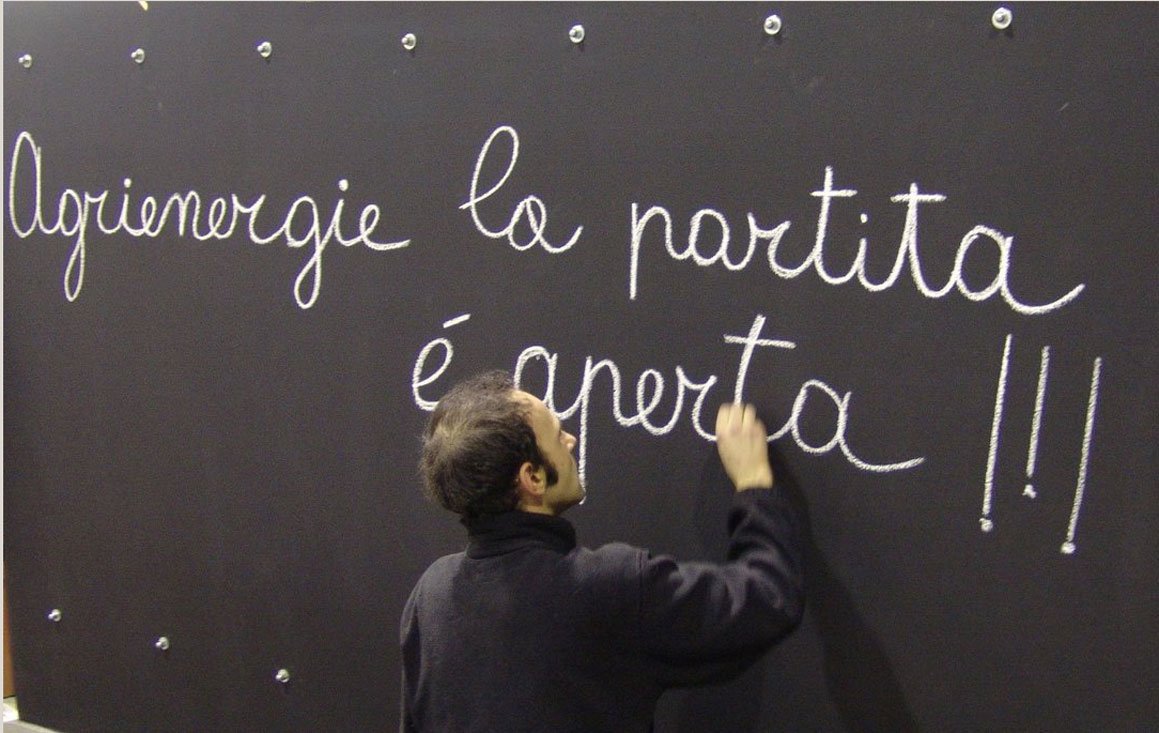 Agrienergie la partita
é aperta !!!